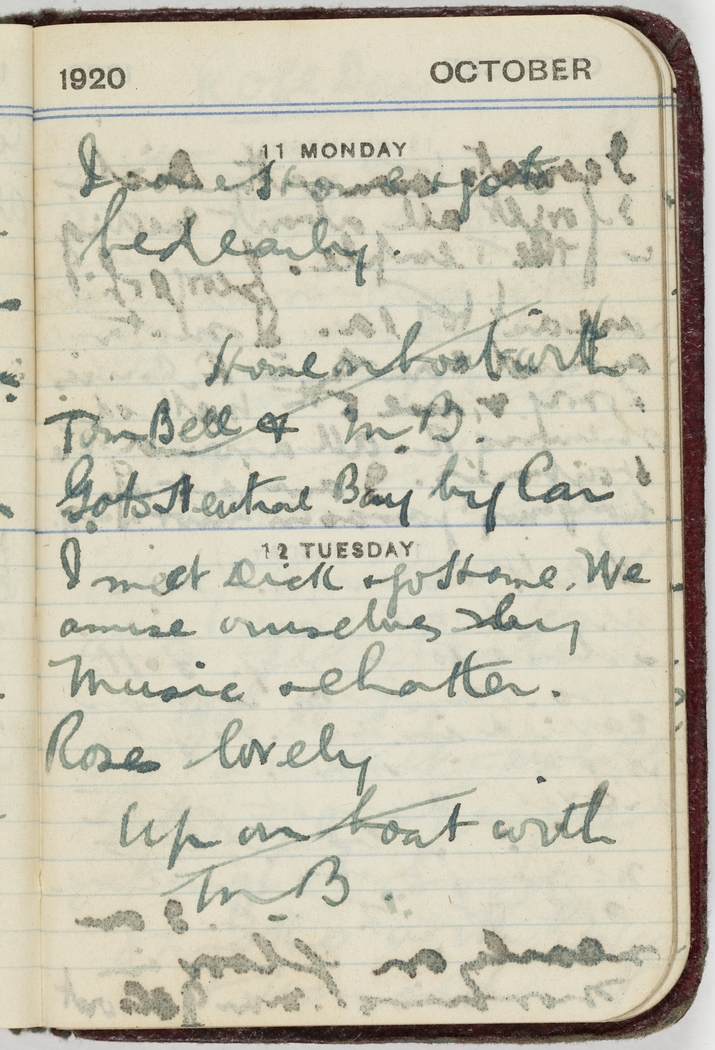 1920 OCTOBER
11 MONDAY
I come Home & go to
bed early.
Home on boat with
Tom Bell & M.B.
Go to Neutral Bay by Car
12 TUESDAY
I meet Dick & go Home. We
amuse ourselves by
Music & chatter.
Roses lovely
Up on boat with
M.B.